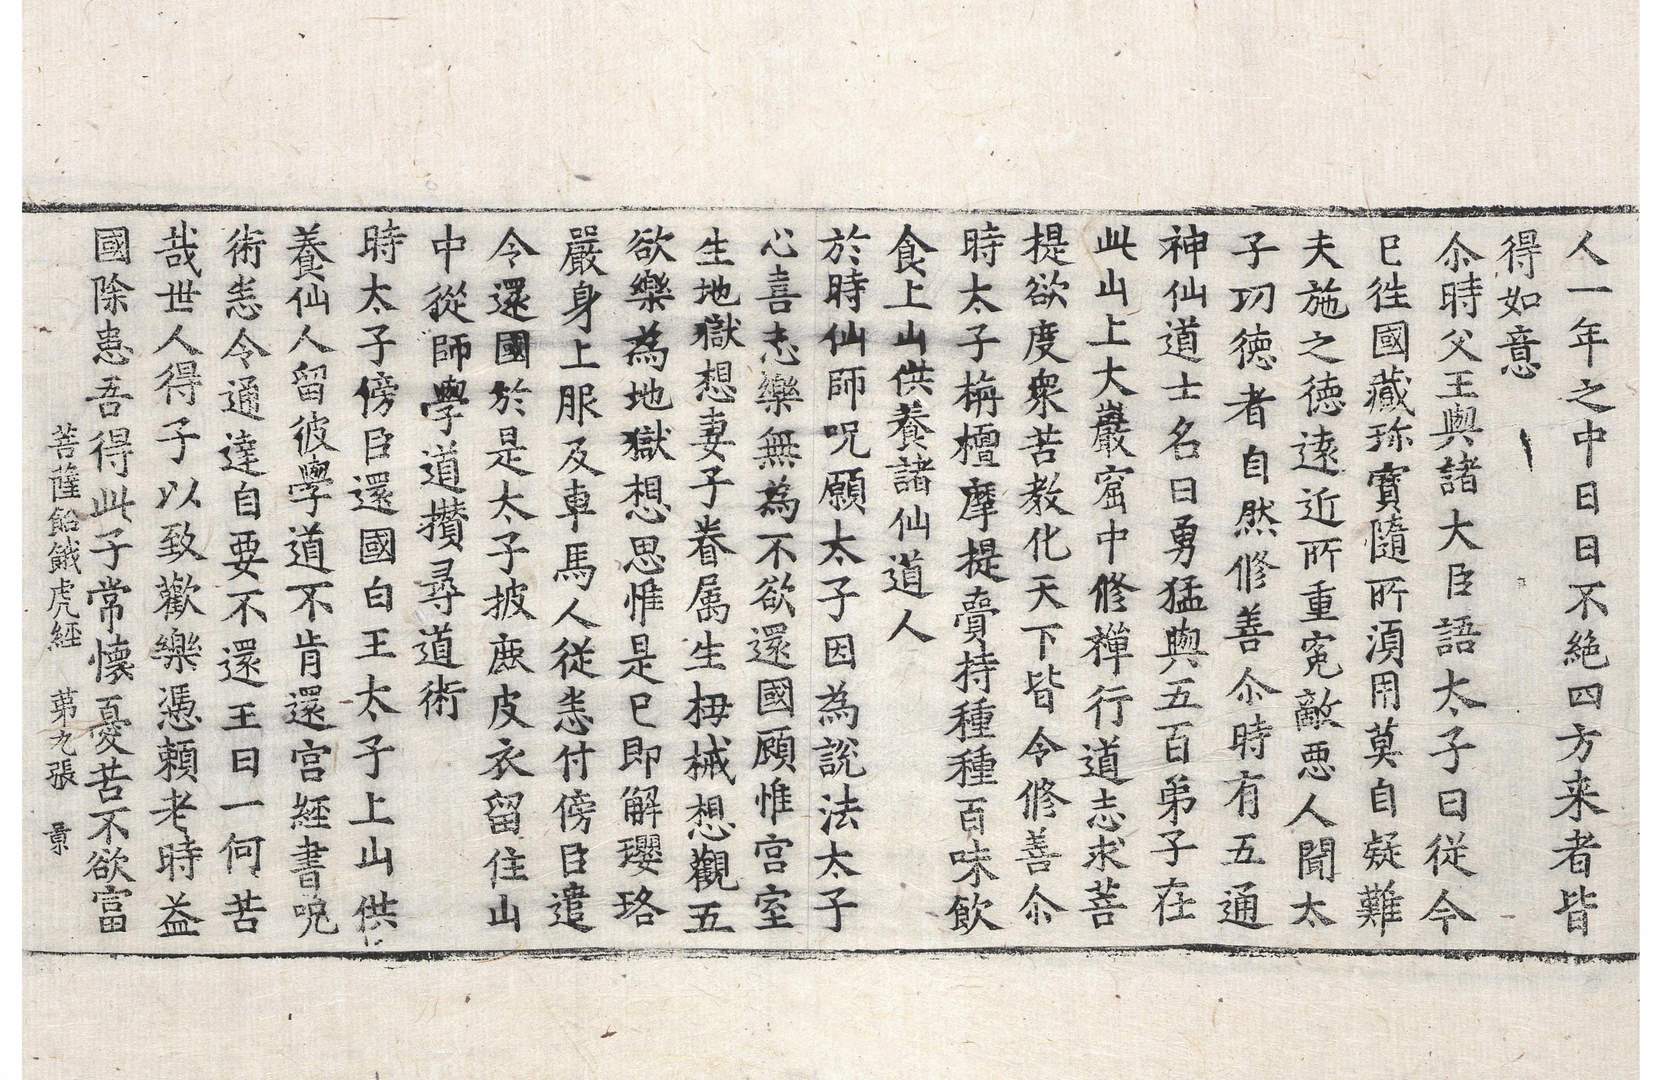 人一年之中日日不絶四方来者皆
得如意
尒時父王與諸大臣語太子曰從今
已徃國藏珎寶隨所湏用莫自疑難
夫施之徳逺近所重寃敵悪人聞太
子功徳者自然修善尒時有五通
神仙道士名曰勇猛與五百弟子在
此山上大巖窟中修禪行道志求菩
提欲度衆苦教化天下皆令修善尒
時太子栴檀摩提賷持種種百味飲
食上山供養諸仙道人
於時仙師呪願太子因為說法太子
心喜志樂無為不欲還國顧惟宫室
生地獄想妻子眷属生杻械想觀五
欲樂為地獄想思惟是已即解瓔珞
嚴身上服及車馬人從悉付傍臣遣
令還國於是太子披鹿皮衣留住山
中從師學道攢尋道術
時太子傍臣還國白王太子上山供
養仙人留彼學道不肯還宫經書呪
術悉令通達自要不還王曰一何苦
哉世人得子以致歡樂憑頼老時益
國除患吾得此子常懷憂苦不欲富
菩薩飴餓虎經　苐九張　景